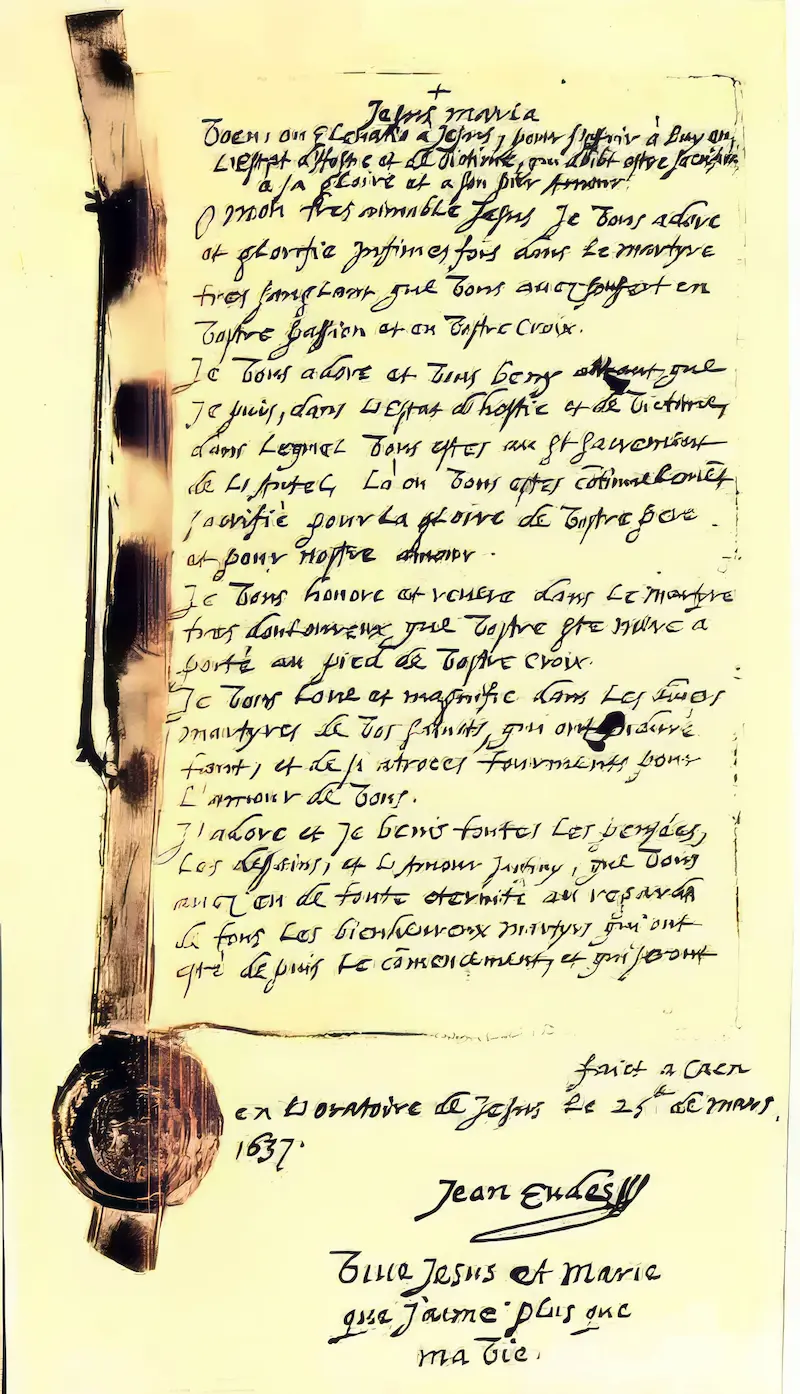 +
Jesus maria
Voeu, ou Elevatiõ a Jesus, pour s'offrir à luy en
L'estat d'Hostie et de Victime, qui doibt estre sacrifiée
a sa gloire et a son pur Amour.
O mon tres aimable Jesus Je vous adore
et glorifie infinies fois dans le martyre
tres sanglant que vous avez souffert en
vostre passion et en vostre croix.
Je vous adore et vous beny autant que
Je puis, dans L'Estat d'hostie et de victime,
dans lequel vous estes au st sacrement
de L'Autel, La ou vous estes cõtinuelemẽt
sacrifié pour La gloire de vostre pere
et pour nostre amour.
Je vous honore et revere dans Le martyre
tres douloureux que vostre ste mere a
porté au pied de vostre croix.
Je vous Loue et magnifie dans Les
martyres de vos saincts, qui ont enduré
tant, et de si atroces tourments pour
L'amour de vous.
J'adore et Je benis toutes Les pensées,
Les desseins, et L'Amour que vous
avez eu de toute eternité au regard
de tous Les bienheureux martyrs qui ont
esté depuis Le cõmencement, et qui seront
faict a Caen
en L'oratoire de Jesus Le 25e de mars
1637.
Jean Eudes
Vive Jesus et Marie
que j'aime plus que
ma vie.